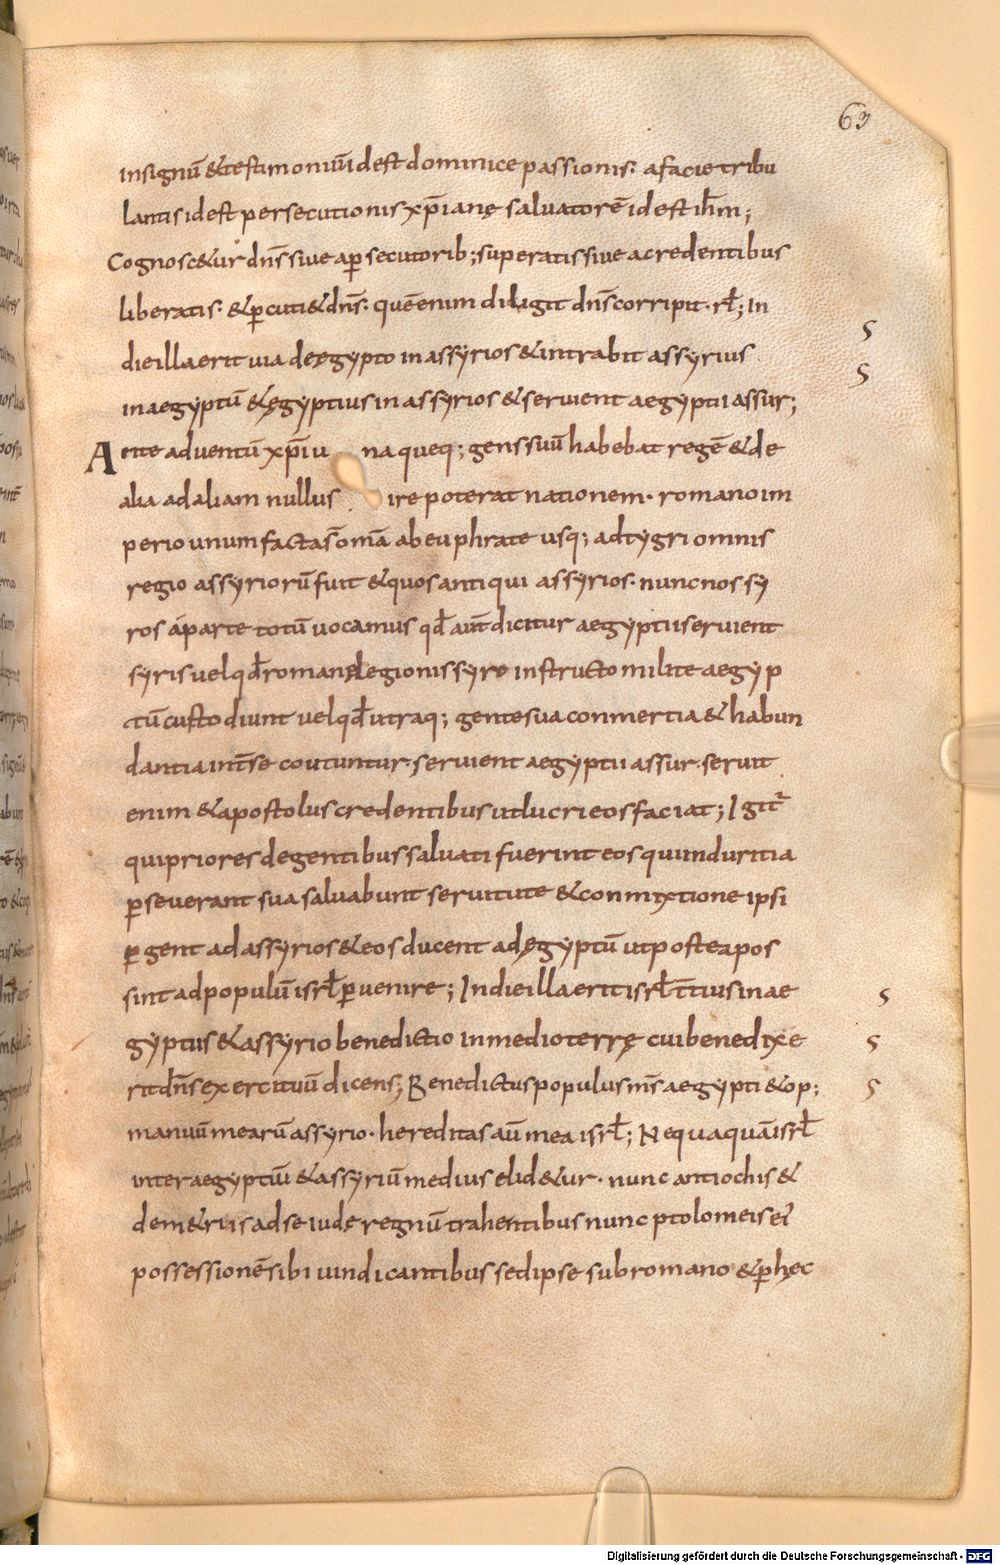 63
insignū & testimoniū idest dominice passionis· afacie tribu
lantis idest persecutionis xp̄ianę saluatorē idest ih̄m;
Cognosc&ur dn̄s siue aꝑsecutorib; superatis siue acredentibus
liberatis· &ꝑcuti& dn̄s· quē enim diligit dn̄s corripit· rł; In
die illa erit uia deęgypto in assyrios & intrabit assyrius
in aegyptū & ęgyptius in assyrios & seruient aegyptii assur;
Ante aduentū xp̄i una queq; gens suū habebat regē & de
alia ad aliam nullus ire poterat nationem· romano im
perio unum facta s̄ om̄a ab euphrate usq; ad tygri omnis
regio assyriorū fuit & quos antiqui assyrios· nunc nos sy
ros aparte totū uocamus qđ aut̄ dicitur aegyptii seruient
syris uel qđ romanę legionis syro instructo milite aegyp
tū custodiunt uel qđ utraq; gente sua conmertia & habun
dantia int̄ se coutuntur· seruient aegyptii assur· seruit
enim & apostolus credentibus ut lucri eos faciat; Igit᷑
qui priores de gentibus saluati fuerint eos qui induritia
ꝑseuerant sua saluabunt seruitute & conmixtione ipsi
ꝑgent ad assyrios & eos ducent ad ęgyptū ut postea pos
sint ad populū isrł ꝑuenire; In die illa erit isrł t̄tius in ae
gyptus & assyrio benedictio in medio terrę cui benedixe
rit dn̄s exercituū dicens; Benedictus populus m̄s aegypti & op;
manuū mearū assyrio· hereditas aū mea isrł; Nequaquā isrł
inter aegyptiū & assyriū medius elid&ur· nunc antiochis &
dem&riis ad se iudę regnū trahentibus nunc ptolomeis ei᷑
possessionē sibi uindicantibus sed ipse sub romano & ꝑ hęc
Digitalisierung gefördert durch die Deutsche Forschungsgemeinschaft - DFG